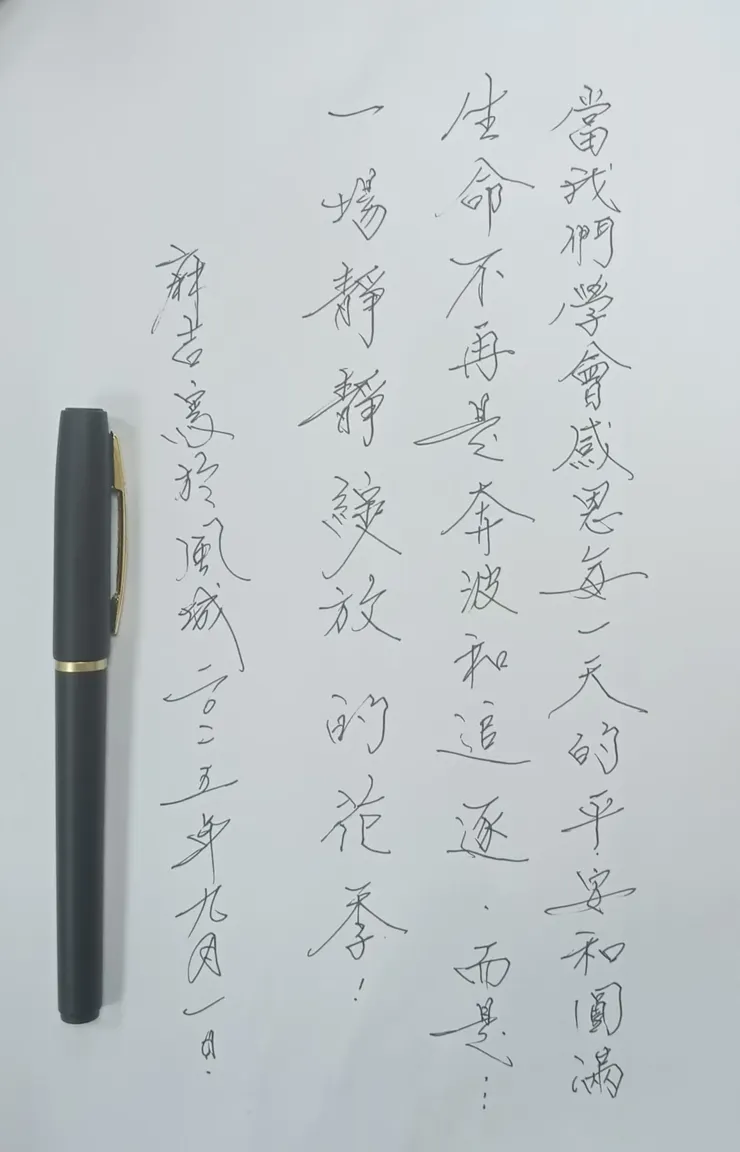 當我們學會感恩每一天的平安和圓滿
生命不再是奔波和追逐.而是...
一場靜靜綻放的花季!
麻吉寫於風城二〇二五年九月一日.